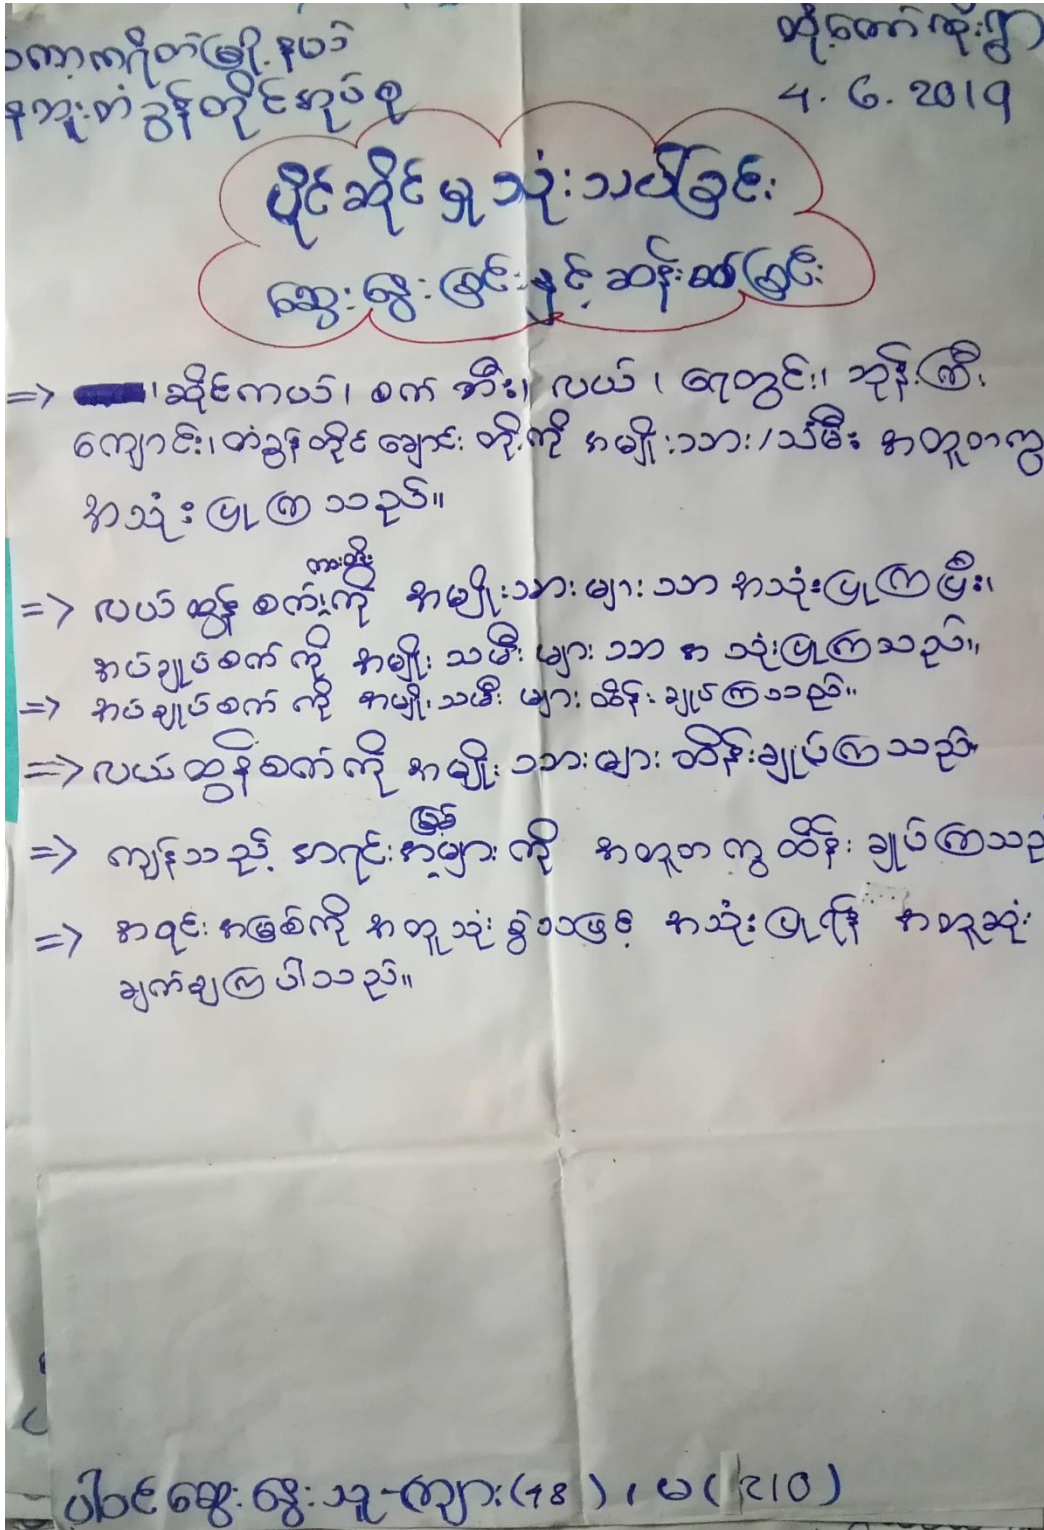 ကော့ကရိတ်မြို့နယ်
တံခွန်တိုင်အုပ်စု
4.6.2019
ပိုင်ဆိုင်မှု သုံးသပ်ခြင်း
ဆွေးနွေးခြင်းနှင့် ဆန်းစစ်ခြင်း
=> ၊ ဆိုင်ကယ်၊ စက်ဘီး၊ လယ်၊ ရေတွင်း၊ ဘုန်းကြီး
ကျောင်း၊ တံခွန်တိုင် ချောင်း တို့ကို အမျိုးသား/သမီး အတူတကွ
အသုံးပြုကြသည်။
ကားထိုး
=> လယ်ထွန်စက်၊ကို အမျိုးသားများသာ အသုံးပြုကြပြီး၊
အပ်ချုပ်စက်ကို အမျိုးသမီးများသာ အသုံးပြုကြသည်။
=> အပ်ချုပ်စက်ကို အမျိုးသမီးများ ထိန်းချုပ်ကြသည်။
=> လယ်ထွန်စက်ကို အမျိုးသားများ ထိန်းချုပ်ကြသည်
မြစ်
=> ကျန်သည့် အရင်းအများကို အတူတကွ ထိန်းချုပ်ကြသည်
=> အရင်းအမြစ်ကို အတူသုံးစွဲသဖြင့် အသုံးပြုရန် အတူဆုံး
ချက်ချကြပါသည်။
ပါဝင်ဆွေးနွေးသူ-ကျား(18)၊ မ(210)